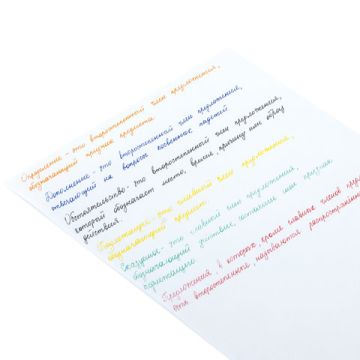 Определение - это второстепенный член предложения,
обозначающий признак предмета.
Дополнение - это второстепенный член предложения,
отвечающий на вопросы косвенных падежей
Обстоятельство - это второстепенный член предложения,
который обозначает место, время, причину или образ
действия.
Подлежащее - это главный член предложения,
обозначающий предмет.
Сказуемое - это главный член предложения
обозначающий действие, состояние или признак
подлежащего
Предложения, в которых, кроме главных членов пред
есть второстепенные, называются распространенны